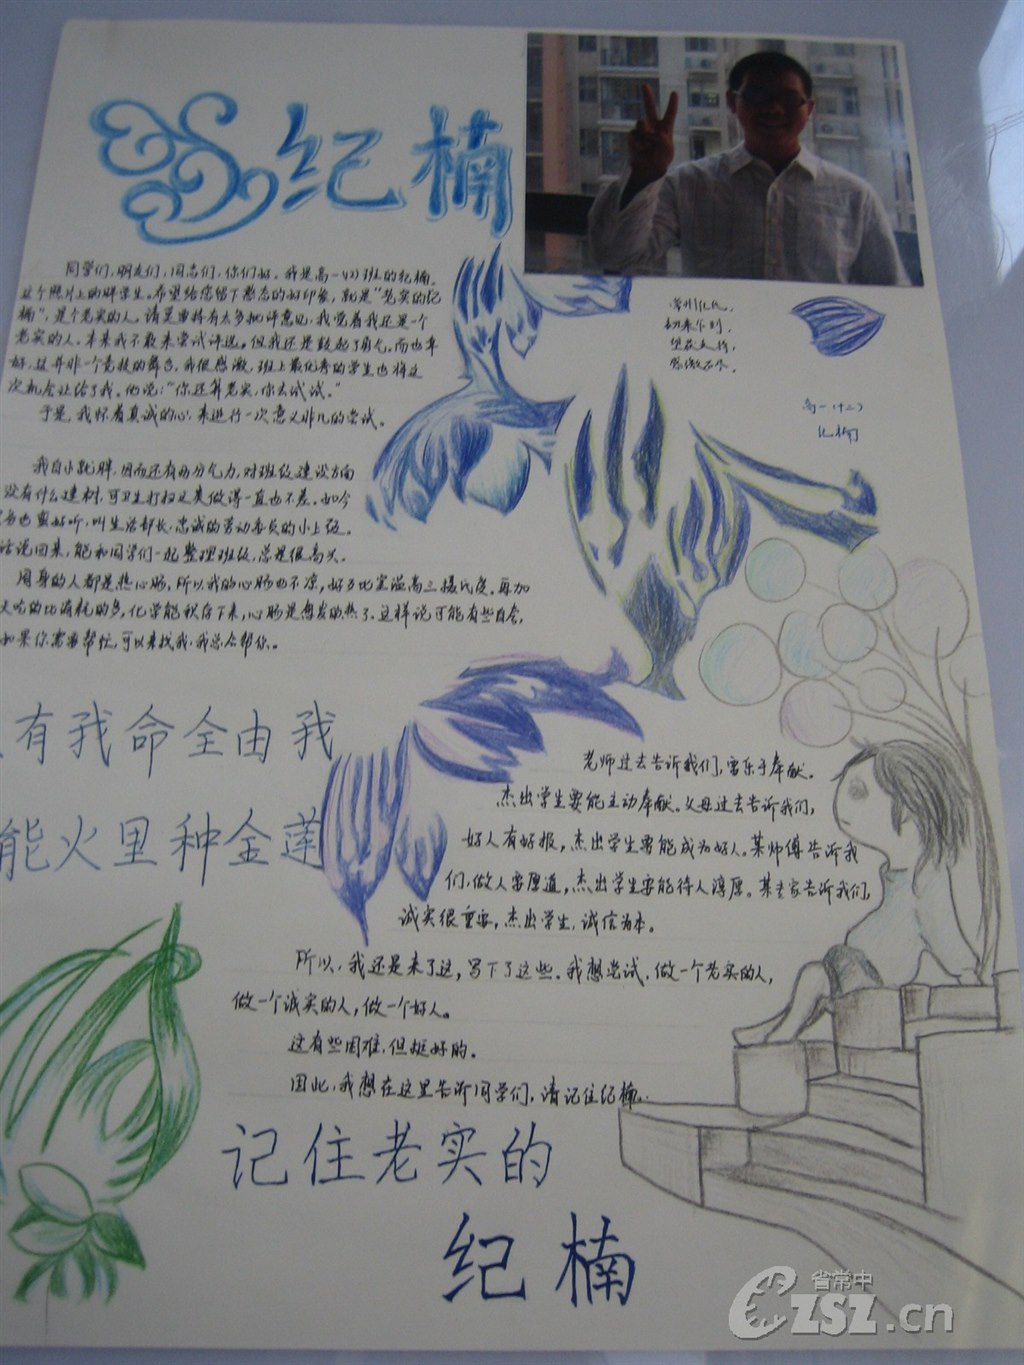 纪楠
同学们，朋友们，同志们，你们好。我是高一(12)班的纪楠。
这个照片上的胖学生。希望给您留下憨态的好印象，就是“老实的纪
楠”，是个老实的人。请莫要持有太多批评意见，我觉着我还是一个
老实的人。本来我不敢来尝试评选。但我还是鼓起了勇气。而也幸
好，这并非一个竞技的舞台。我很感激，班上最优秀的学生也将这
次机会让给了我。他说：“你还算老实，你去试试。”
于是，我怀着真诚的心，来进行一次意义非凡的尝试。
常州纪氏，
初来乍到，
望在支持，
感激不尽。
高一(十二)
纪楠
我自小就胖，因而还有两分气力，对班级建设方面
没有什么建树，可卫生打扫之类做得一直也不差。如今
也蛮好听，叫生活部长，忠诚的劳动委员的小上级。
话说回来，能和同学们一起整理班级，总是很高兴。
周身的人都是热心肠，所以我的心肠也不凉，好歹比室温高三摄氏度。再加
天吃的比消耗的多，化学能积存下来，心肠是愈发的热了。这样说可能有些自夸，
如果你需要帮忙，可以来找我，我总会帮你。
有我命全由我
能火里种金莲
老师过去告诉我们，要乐于奉献。
杰出学生要能主动奉献。父母过去告诉我们，
好人有好报，杰出学生要能成为好人。某师傅告诉我
们，做人要厚道，杰出学生要能待人淳厚。某专家告诉我们，
诚实很重要，杰出学生，诚信为本。
所以，我还是来了这，写下了这些。我想尝试，做一个老实的人，
做一个诚实的人，做一个好人。
这有些困难，但挺好的。
因此，我想在这里告诉同学们，请记住纪楠。
记住老实的
纪楠
省常中
CZSZ.cn